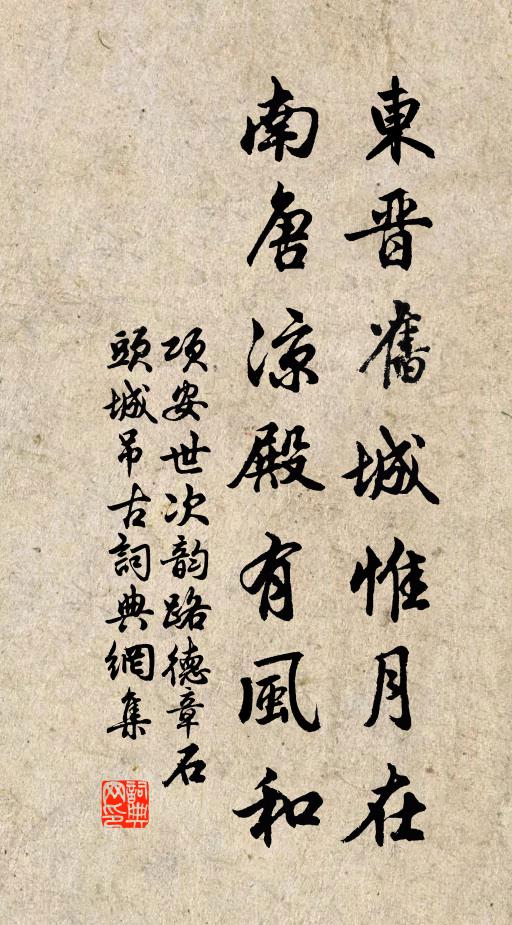 東晋舊城惟月在
南唐凉殿有風和
項安世次韵路德章石
頭城吊古詞典網集
詞典网印